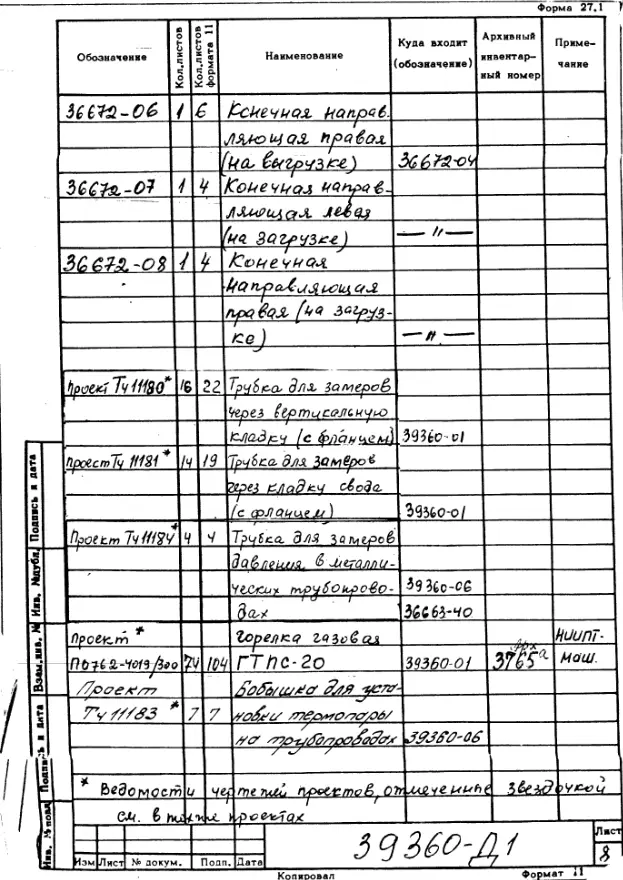 Форма 27.1
Обозначение Кол.листов Кол.листов формата 11 Наименование Куда входит (обозначение) Архивный инвентарный номер Примечание
36672-06 1 6 Конечная направ-
ляющая правая
(на выгрузке) 36672-04
36672-07 1 4 Конечная направ-
ляющая левая
(на загрузке) — 〃 —
36672-08 1 4 Конечная
направляющая
правая (на загруз-
ке) — 〃 —
проект Тч 11180* 16 22 Трубка для замеров
через вертикальную
кладку (с фланцем) 39360-01
проект Тч 11181* 14 19 Трубка для замеров
через кладку свода
(с фланцем) 39360-01
Проект Тч 11184* 4 4 Трубка для замеров
давления в металли-
ческих трубопрово- 39360-06
дах 36663-40
проект* горелка газовая арх НИИПТ-
П0762-4019/300 74 104 ГТПС-20 39360-01 3765а маш.
Проект Бобышка для уста-
Тч 11183* 7 7 новки термопары
на трубопроводах 39360-06
* Ведомости чертежей проектов, отмеченные звездочкой
см. в проектах
39360-Д1
Лист
8
Изм Лист № докум. Подп. Дата
Копировал Формат 11
Инв. № подл Подпись и дата Взам. инв. № Инв. № дубл. Подпись и дата